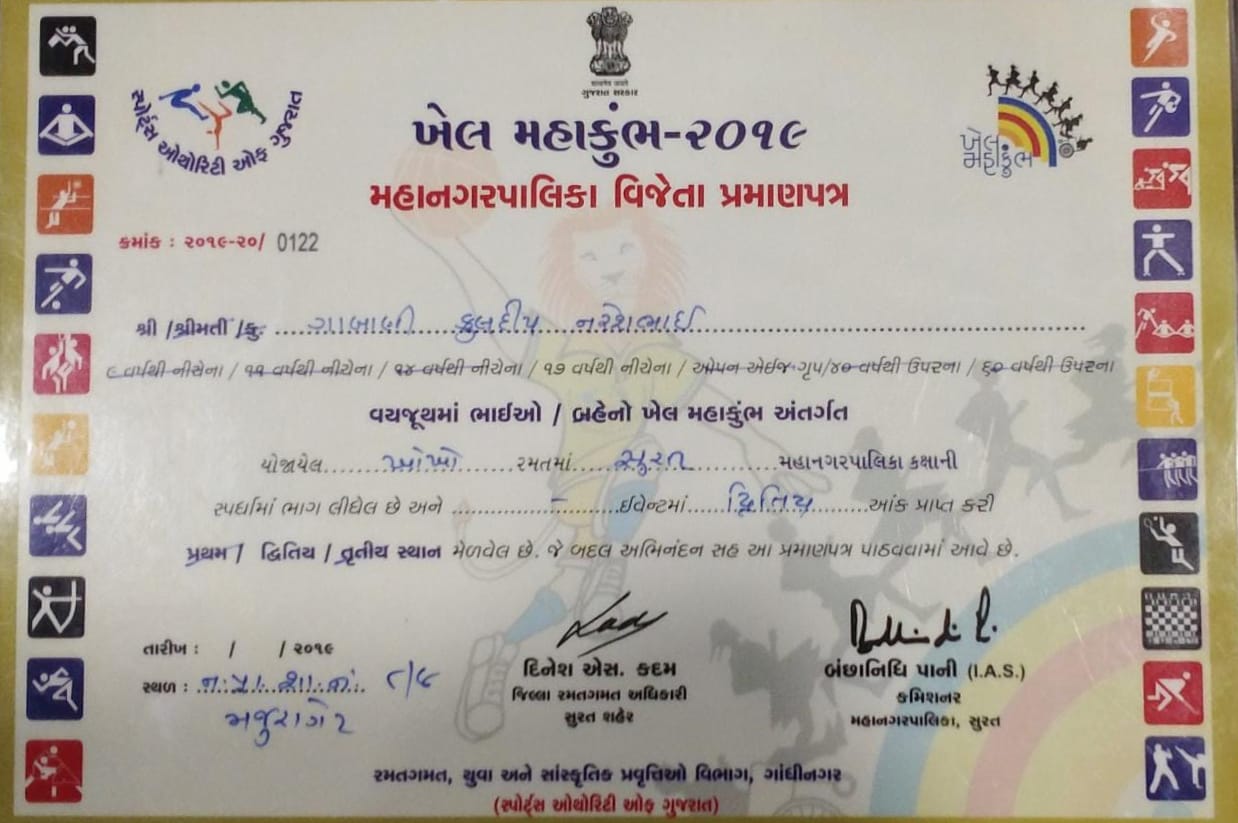 ગુજરાત સરકાર
સ્પોર્ટ્સ ઓથોરિટી ઓફ ગુજરાત
ખેલ મહાકુંભ-૨૦૧૯
ખેલ મહાકુંભ
મહાનગરપાલિકા વિજેતા પ્રમાણપત્ર
ક્રમાંક : ૨૦૧૯-૨૦/ 0122
શ્રી /શ્રીમતી /કુ. ગાબાણી કુલદીપ નરેશભાઈ
૯ વર્ષથી નીચેના / ૧૧ વર્ષથી નીચેના / ૧૪ વર્ષથી નીચેના / ૧૭ વર્ષથી નીચેના / ઓપન એઈજ ગૃપ/૪૦ વર્ષથી ઉપરના / ૬૦ વર્ષથી ઉપરના
વયજૂથમાં ભાઈઓ / બ્રહેનો ખેલ મહાકુંભ અંતર્ગત
યોજાયેલ ખોખો રમતમાં સુરત મહાનગરપાલિકા કક્ષાની
સ્પર્ધામાં ભાગ લીધેલ છે અને - ઈવેન્ટમાં દ્વિતિય આંક પ્રાપ્ત કરી
પ્રથમ / દ્વિતિય / તૃતીય સ્થાન મેળવેલ છે. જે બદલ અભિનંદન સહ આ પ્રમાણપત્ર પાઠવવામાં આવે છે.
તારીખ : / / ૨૦૧૯
સ્થળ : ન.પ્રા.શા.નં.
મજુરાગેટ
દિનેશ એસ. કદમ
જિલ્લા રમતગમત અધિકારી
સુરત શહેર
બંછાનિધિ પાની (I.A.S.)
કમિશનર
મહાનગરપાલિકા, સુરત
રમતગમત, યુવા અને સાંસ્કૃતિક પ્રવૃત્તિઓ વિભાગ, ગાંધીનગર
(સ્પોર્ટ્સ ઓથોરિટી ઓફ ગુજરાત)